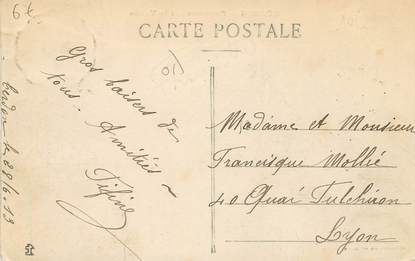 6€
CARTE POSTALE
01
Gros baisers de
tous. Amitiés
Fifine
Cerdon le 28/6-13
Madame et Monsieur
Francisque Mollié
40 Quai Tulchiron
Lyon